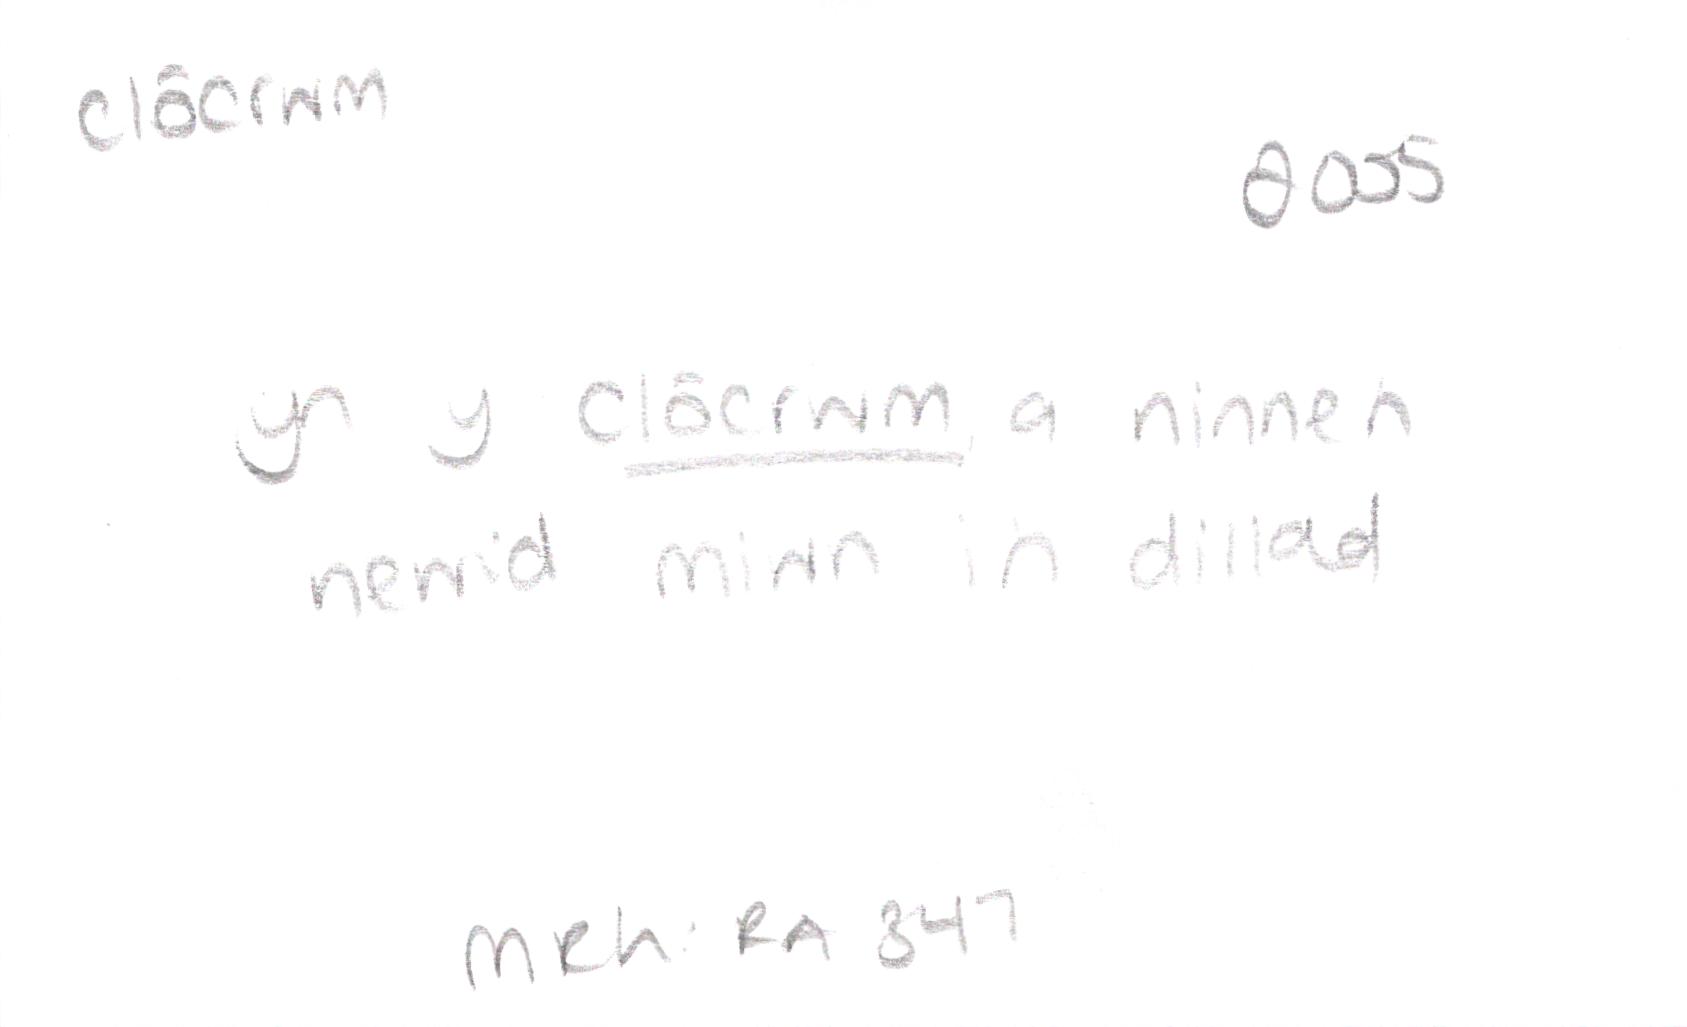 clôcrwm
2055
yn y clôcrwm a ninneh
newid miwn ih dillad
MRh: RA 347